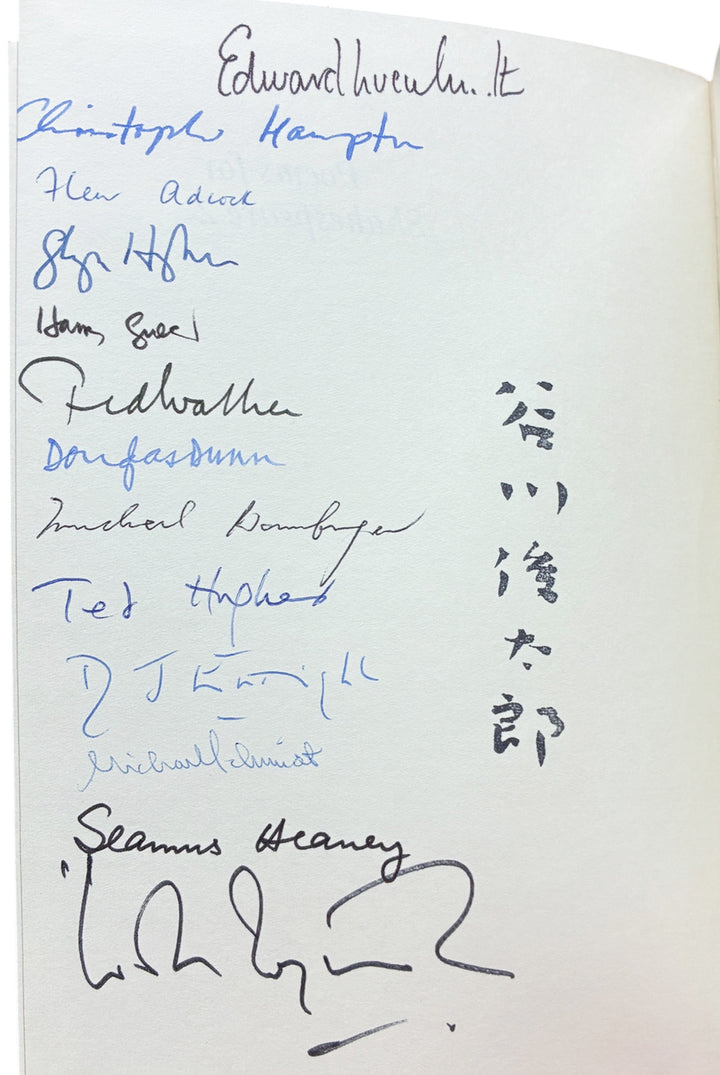 Edward
Christopher Hampton
Fleur Adcock
Glyn Hughes
Harry Guest
Ted Walker
Douglas Dunn
Michael Hamburger
Ted Hughes
D J Enright
Michael Schmidt
Seamus Heaney
谷川俊太郎